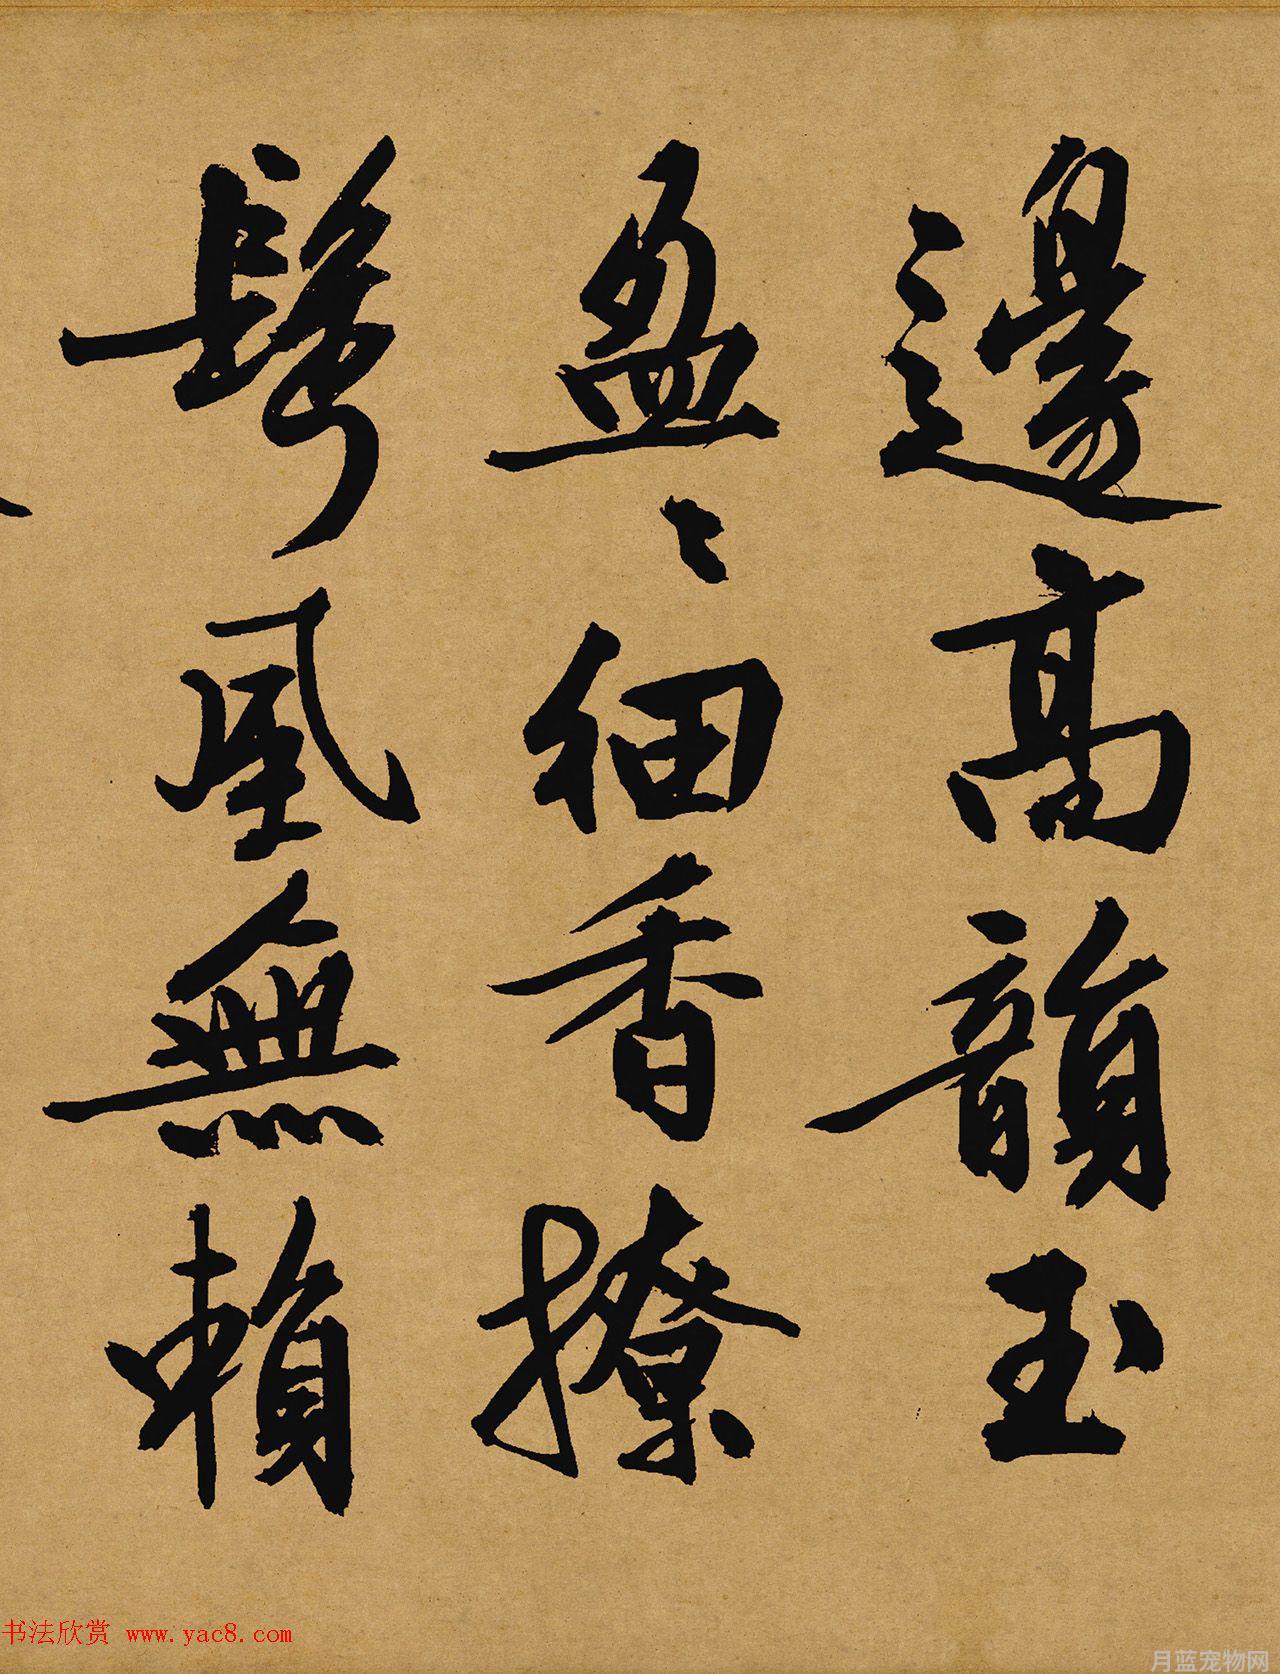 邊高韻玉
盈〻細香撩
鬢風無賴
书法欣赏 www.yac8.com
月蓝宠物网